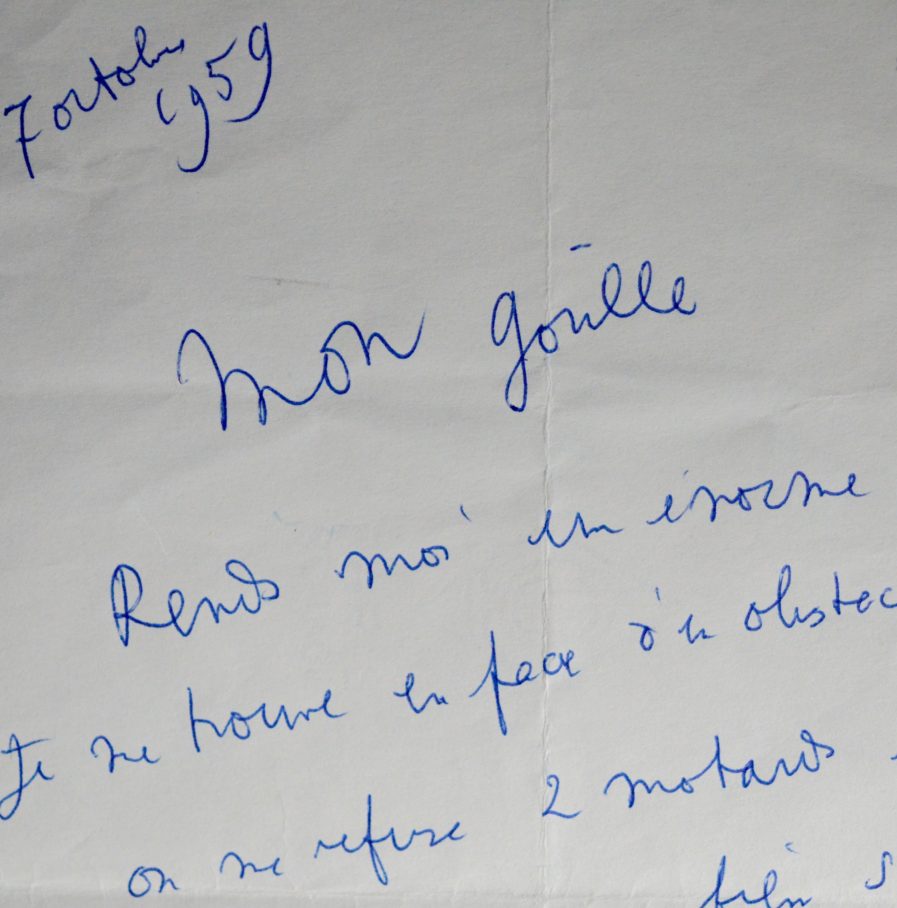 7 octobre
1959
mon goulle
Rends moi un énorme
Je me trouve en face d'un obstac
on me refuse 2 motards
bien s